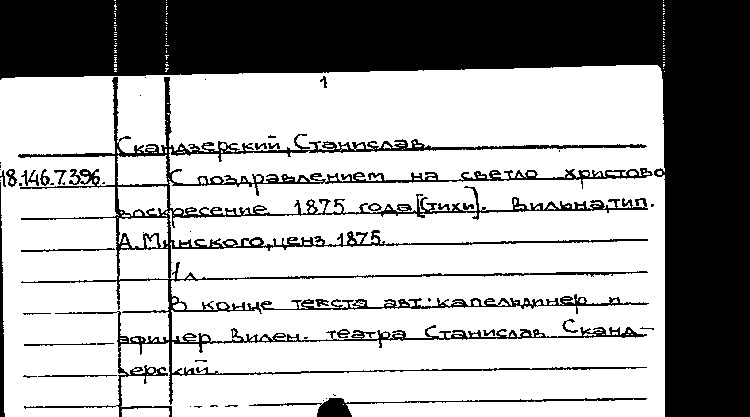 1
Скандзерский, Станислав.
18.146.7.396. С поздравлением на светло христово
воскресение 1875 года [Стихи]. Вильна, тип.
А. Минского, ценз. 1875.
1 л.
В конце текста авт.: капельдинер и
афишер Вилен. театра Станислав Сканд-
зерский.